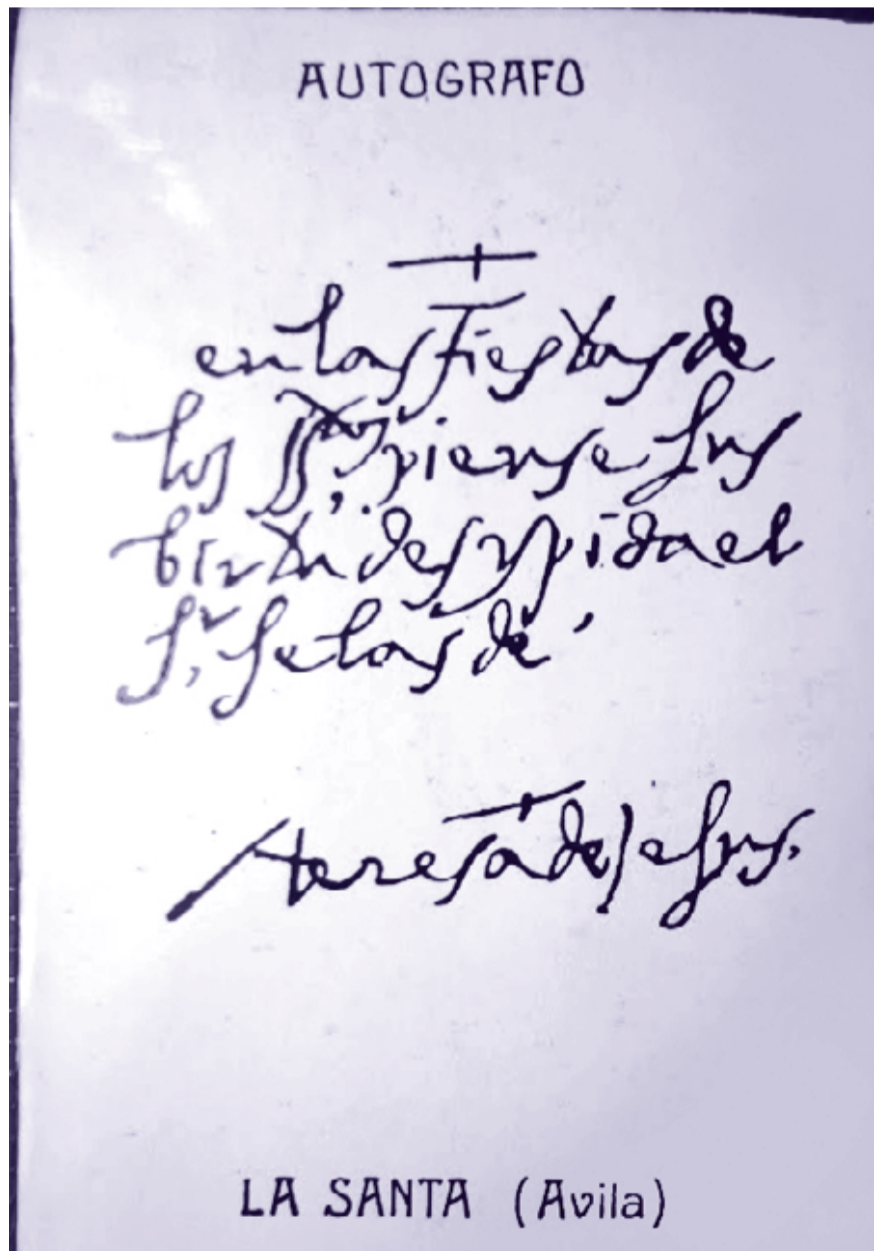 AUTOGRAFO
en las fiestas de
los SS.tos piense sus
birtudes y pida el
S.r se las de
teresa de Jesus.
LA SANTA (Avila)